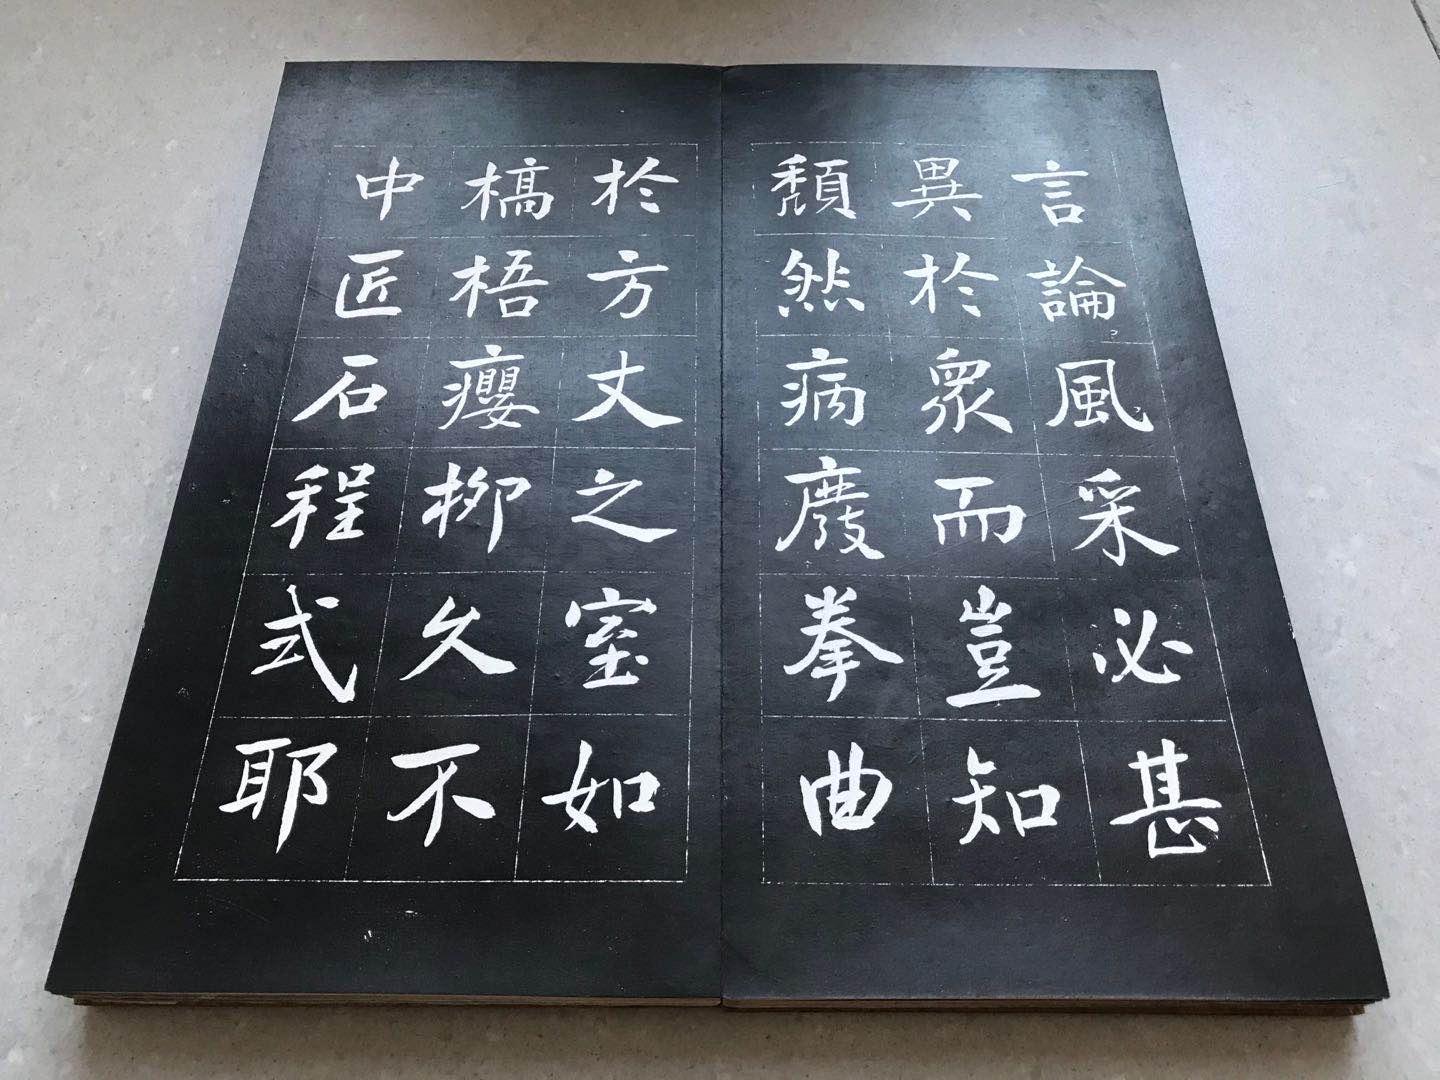 言論風采必甚
異於衆而豈知
頽然病廢拳曲
於方丈之室如
槁梧癭柳久不
中匠石程式耶